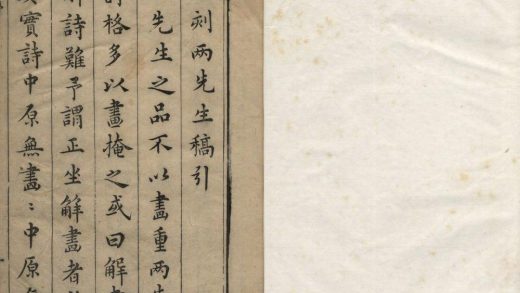 刻两先生稿引
先生之品不以畫重两先
詩格多以畫掩之或曰解畫
詩難予謂正坐解畫者
實詩中原無畫〻中原